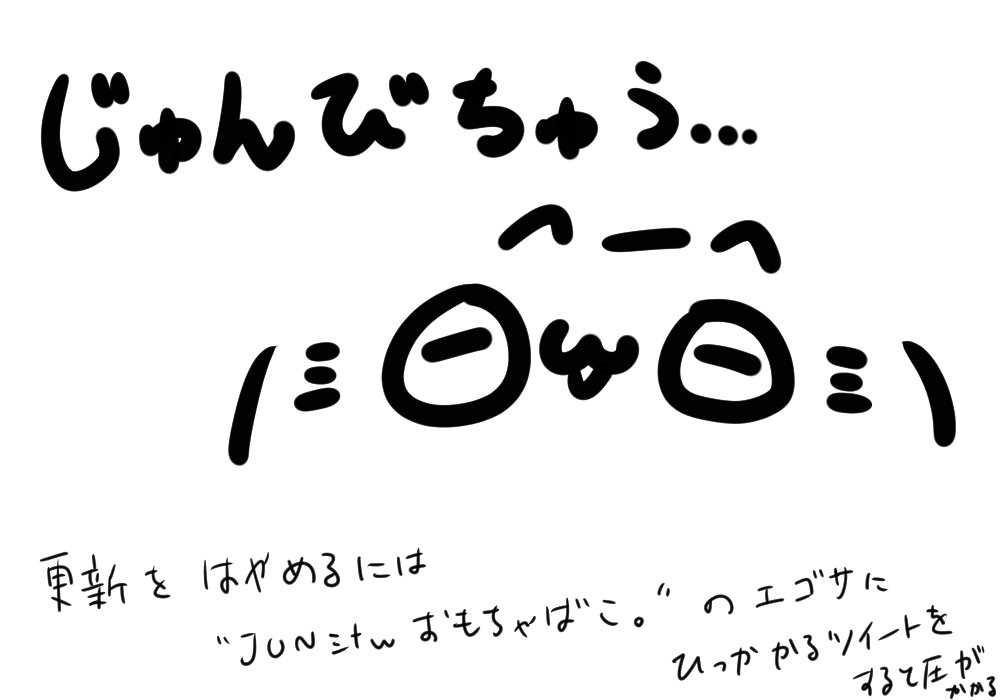 じゅんびちゅう...
更新をはやめるには
"JUNミナwおもちゃばこ。"のエゴサに
ひっかかるツイートを
すると圧が
かかる